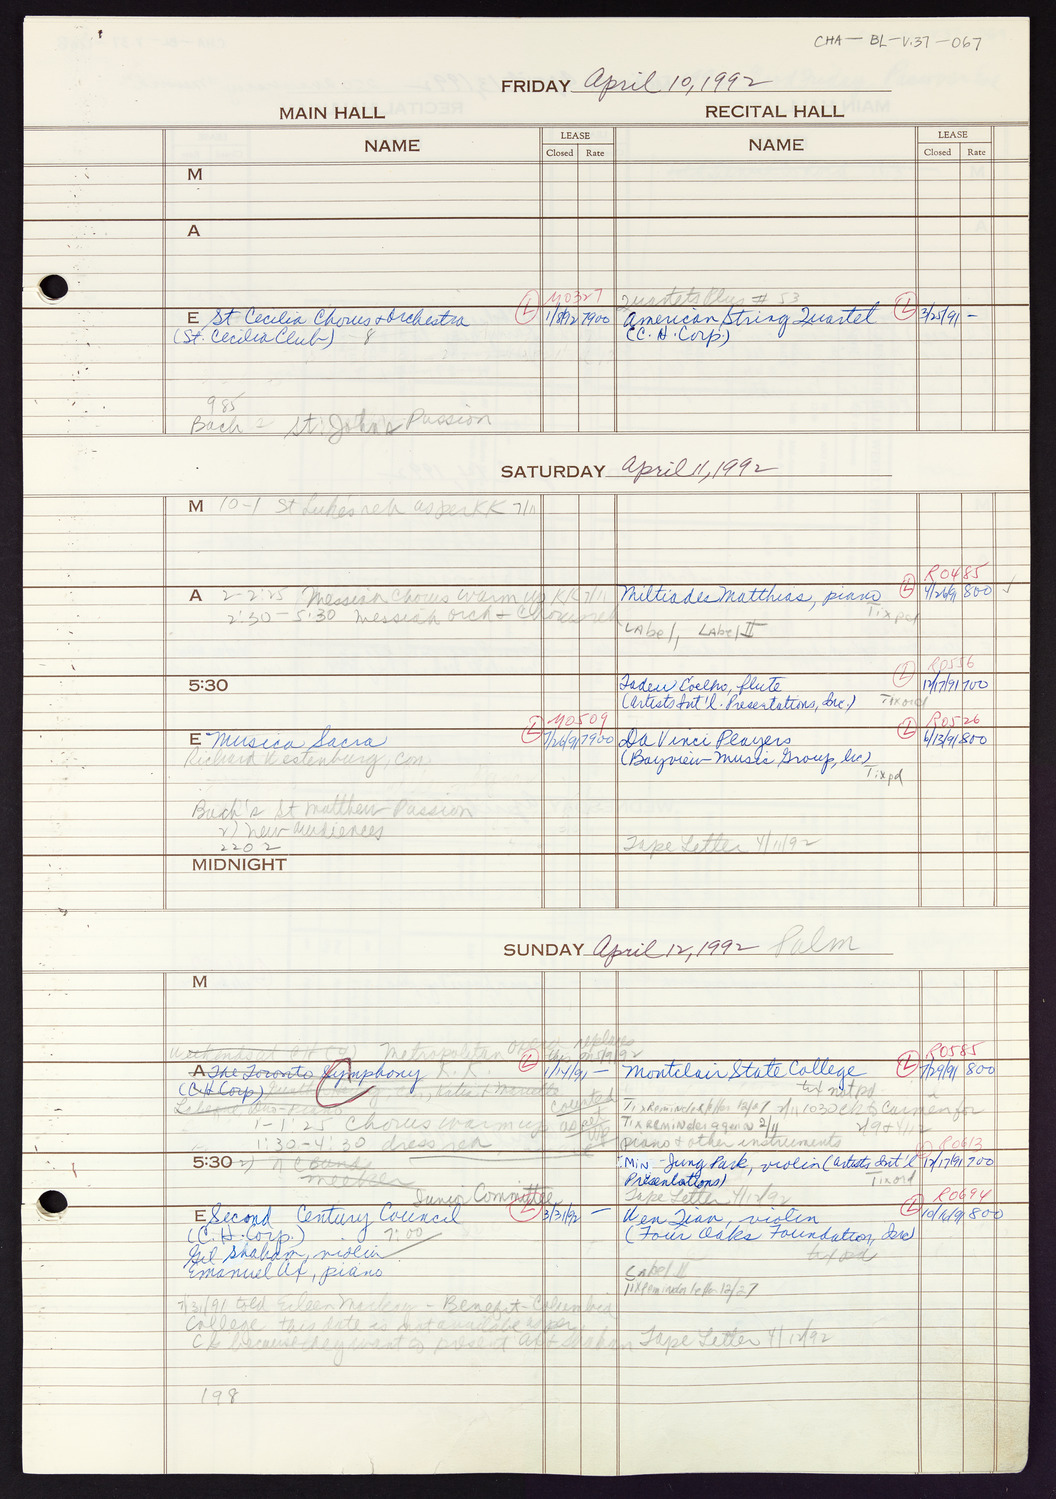 CHA-BL-V.37-067
FRIDAY April 10, 1992
MAIN HALL
RECITAL HALL
NAME
LEASE
Closed Rate
NAME
LEASE
Closed Rate
M
A
M0327
Quartets Plus # 53
E St Cecilia Chorus & Orchestra L 1/8/92 7900
American String Quartet L 3/25/91 —
(St. Cecilia Club) 8
(C. H. Corp.)
985
Bach - St. John's Passion
SATURDAY April 11, 1992
M 10-1 St Luke's reh as per KK 7/11
R0485
A 2-2:25 Messiah Chorus warm up KK 7/11
Miltiades Matthias, piano L 4/26/91 800
Tix pd
2:30-5:30 Messiah orch & Chorus reh
Label, Label II
R0556
5:30
Tadeu Coelho, flute L 12/17/91 700
(Artists Int'l. Presentations, Inc.) Tix ord
M0509
R0526
E Musica Sacra L 7/26/91 7900
Da Vinci Players L 6/13/91 800
Richard Westenburg, con
(Bayview Music Group, Inc)
Tix pd
Bach's St Matthew Passion
2) New Audiences
2202
Tape Letter 4/11/92
MIDNIGHT
SUNDAY April 12, 1992 Palm
M
Weekends at CH (4) Metropolitan
replaces
R0585
A The Toronto Symphony K.K. L 1/14/91 —
Montclair State College L 7/29/91 800
(C H Corp)
tix not pd
Labeque, duo-piano
Tix Reminder letter 12/27
1-1:25 Chorus warm up as per
Tix Reminder again 2/11
1:30-4:30 dress reh
piano & other instruments
R0613
5:30
Min-Jung Park, violin (Artists Int'l 12/17/91 700
Presentations)
Tix ord
Tape Letter 4/12/92
Junior Committee
R0694
E Second Century Council L 3/31/92 —
Wen Qian, violin L 10/16/91 800
(C. H. Corp.) 7:00
(Four Oaks Foundation, Inc)
Gil Shaham, violin
tix pd
Emanuel Ax, piano
Label II
Tix Reminder letter 12/27
7/31/91 told Eileen Mackay - Benefit - Columbia
College this date is not available as per
CK because they want to present Ax & Shaham
Tape Letter 4/12/92
198